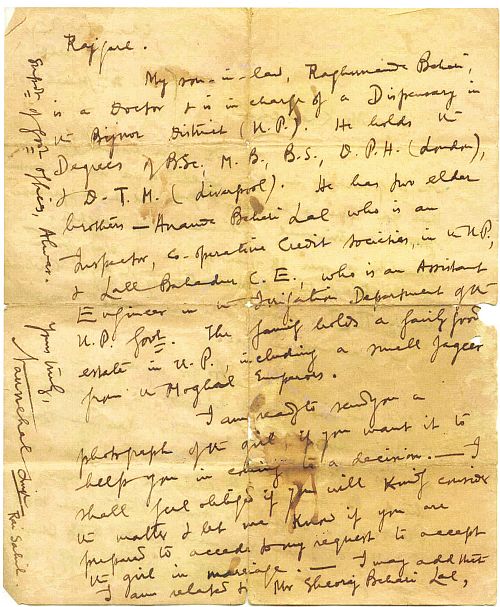 Rajgarh.
My son-in-law, Raghunandan Behari,
is a Doctor & is in charge of a Dispensary in
the Bijnor District (U.P.). He holds the
Degrees of B.Sc., M.B., B.S., D.P.H. (London),
& D.T.M. (Liverpool). He has two elder
brothers — Ananda Behari Lal who is an
Inspector, co-operative Credit Societies, in the U.P.,
& Lall Bahadur C.E., who is an Assistant
Engineer in the Irrigation Department of the
U.P. Govt. The family holds a fairly good
estate in U.P., including a small Jageer
from the Moghal Emperors.
I am ready to send you a
photograph of the girl if you want it to
help you in coming to a decision. — I
shall feel obliged if you will kindly consider
the matter & let me know if you are
prepared to accede to my request to accept
the girl in marriage. — I may add that
I am related to Mr Sheoraj Behari Lal,
Supdt of Govt offices, Alwar.
Yours truly,
Naunehal Singh
Rai Sahib.